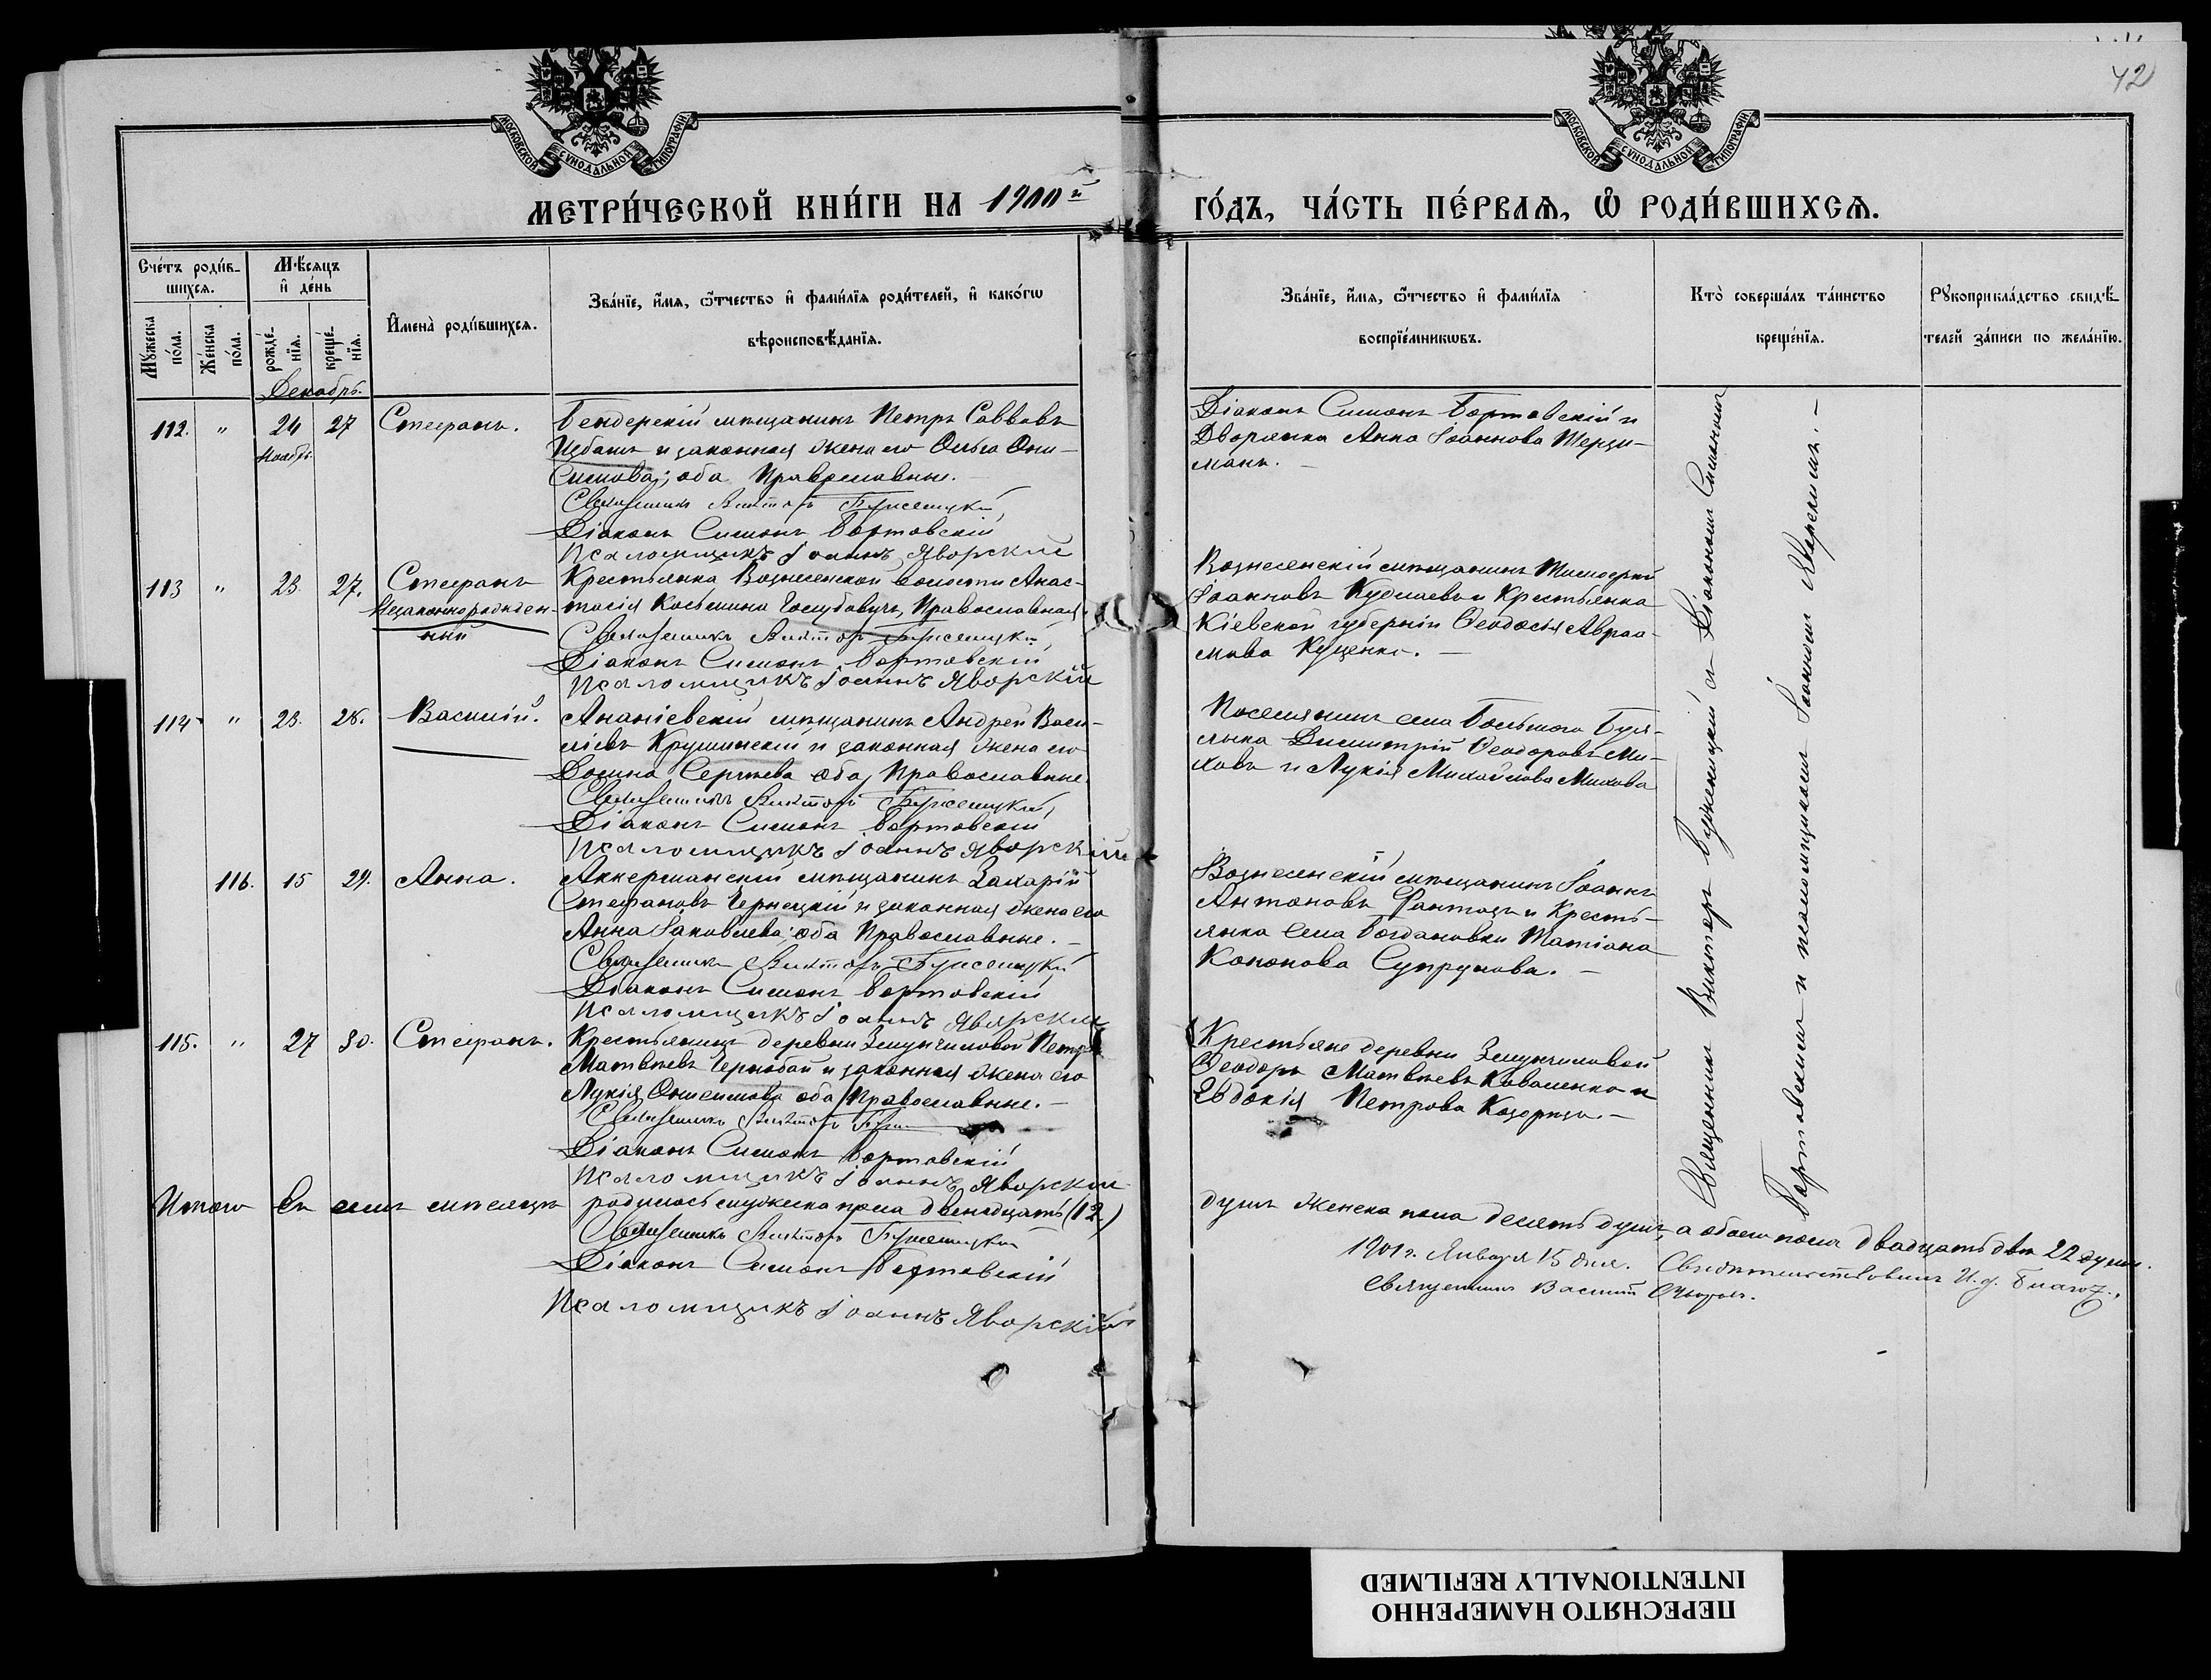 42
МОСКОВСКОЙ СѴНОДАЛЬНОЙ ТИПОГРАФІИ
МОСКОВСКОЙ СѴНОДАЛЬНОЙ ТИПОГРАФІИ
МЕТРИ́ЧЕСКОЙ КНИ́ГИ НА 1900й
ГО́ДЪ, ЧА́СТЬ ПЕ́РВАѦ, Ѡ РОДИ́ВШИХСѦ.
Сче́тъ роди́в-
шихсѧ.
Мꙋ́жеска
по́ла.
Же́нска
по́ла.
Мѣ́сѧцъ
и҆ де́нь
рожде́-
нїѧ.
креще́-
нїѧ.
И҆мена̀ роди́вшихсѧ.
Зва́нїе, и҆́мѧ, ѻ҆́тчество и҆ фами́лїѧ роди́телей, и҆ како́гѡ
вѣроисповѣ́данїѧ.
Зва́нїе, и҆́мѧ, ѻ҆́тчество и҆ фами́лїѧ
воспрїе́мникѡвъ.
Кто̀ соверша́лъ та́инство
креще́нїѧ.
Рꙋкоприкла́дство свидѣ́-
телей за́писи по жела́нїю.
Декабрь.
112. " 24 27 Стефанъ.
Ноябрь
Бендерскій мѣщанинъ Петръ Саввовъ
и законная жена его Ольга Они-
симова; оба Православные.
Священникъ Викторъ Буженицкій
Діаконъ Симонъ Бортовскій
Псаломщикъ Іоаннъ Яворскій
Діаконъ Симонъ Бортовскій и
Дворянка Анна Іоаннова
113 " 23. 27. Стефанъ
Незаконнорожден-
ный
Крестьянка Вознесенской волости Анас-
тасія Косьмина Голубовичъ, Православная.
Священникъ Викторъ Буженицкій
Діаконъ Симонъ Бортовскій
Псаломщикъ Іоаннъ Яворскій
Вознесенскій мѣщанинъ Тимофей
Іоанновъ и Крестьянка
Кіевской губерніи Ѳеодосія Авраа-
мова Куценко. —
114 " 23. 28. Василій.
Ананіевскій мѣщанинъ Андрей Васи-
ліевъ Крушинскій и законная жена его
Домна Сергѣева оба Православные
Священникъ Викторъ Буженицкій
Діаконъ Симонъ Бортовскій
Псаломщикъ Іоаннъ Яворскій
Поселянинъ села Большого Буя-
лыка Димитрій Ѳеодоровъ Ми-
ховъ и Лукія Михайлова Михова
116. 15 29. Анна.
Аккерманскій мѣщанинъ Захарій
Стефановъ Чернецкій и законная жена его
Анна Іаковлева; оба Православные. —
Священникъ Викторъ Буженицкій
Діаконъ Симонъ Бортовскій
Псаломщикъ Іоаннъ Яворскій
Вознесенскій мѣщанинъ Іоаннъ
Антоновъ и Кресть-
янка села Богдановки Татіана
Кононова Супрунова. —
115. " 27 30. Стефанъ.
Крестьянинъ деревни Петръ
Матвѣевъ Чернобай и законная жена его
Лукія Онисимова оба Православные. —
Священникъ Викторъ
Діаконъ Симонъ Бортовскій
Псаломщикъ Іоаннъ Яворскій
Крестьяне деревни
Ѳеодоръ Матвѣевъ Коваленко и
Евдокія Петрова —
Священникъ Викторъ Буженицкій съ Діакономъ Симономъ
Бортовскимъ и псаломщикомъ Іоанномъ Яворскимъ. —
Итого въ семъ мѣсяцѣ родилось мужеска пола двенадцать (12)
душъ женска пола десять душъ, а обоего пола двадцать двѣ 22 души.
Священникъ Викторъ Буженицкій
Діаконъ Симонъ Бортовскій
Псаломщикъ Іоаннъ Яворскій
1901 г. Января 15 дня. Свидѣтельствовалъ И. д. Благоч.,
священникъ Василій
ПЕРЕСНЯТО НАМЕРЕННО
INTENTIONALLY REFILMED